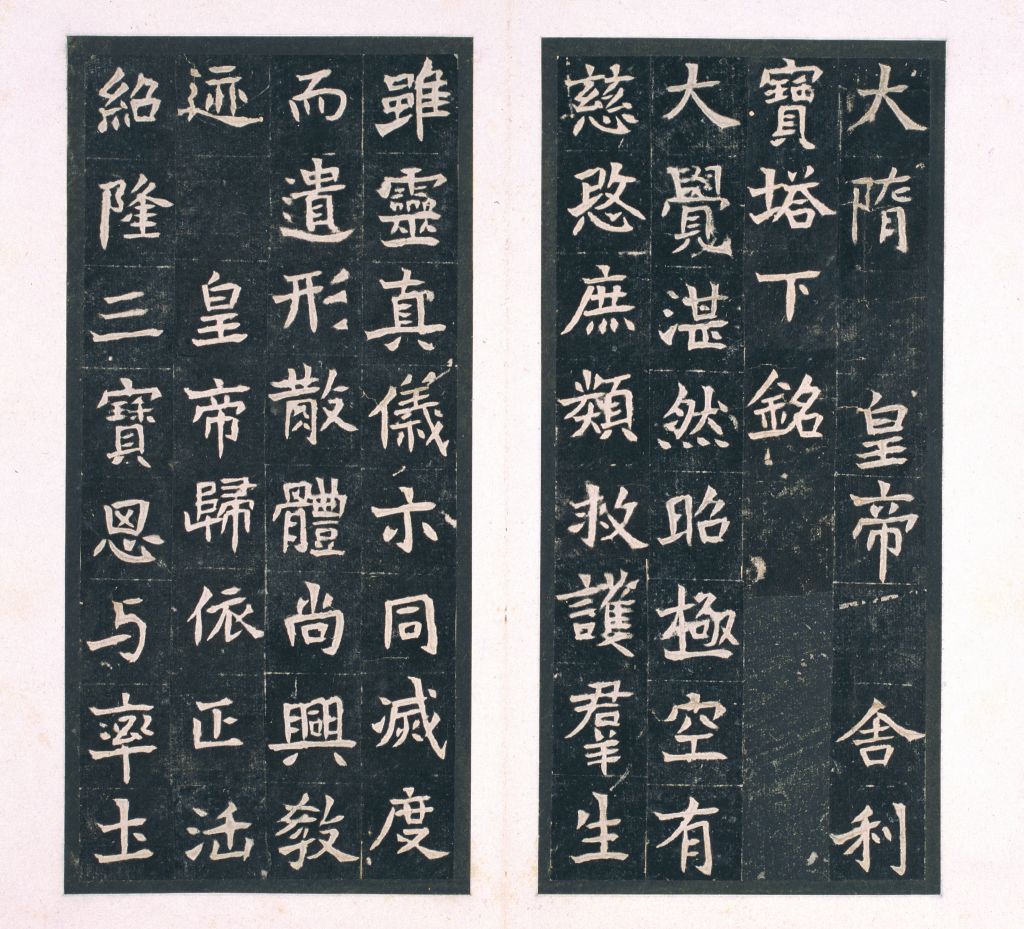 大隋皇帝舍利
寶塔下銘
大覺湛然昭極空有
慈愍庶類救護羣生
雖靈真儀示同滅度
而遺形散體尚興教
迹皇帝歸依正法
紹隆三寶思与率土